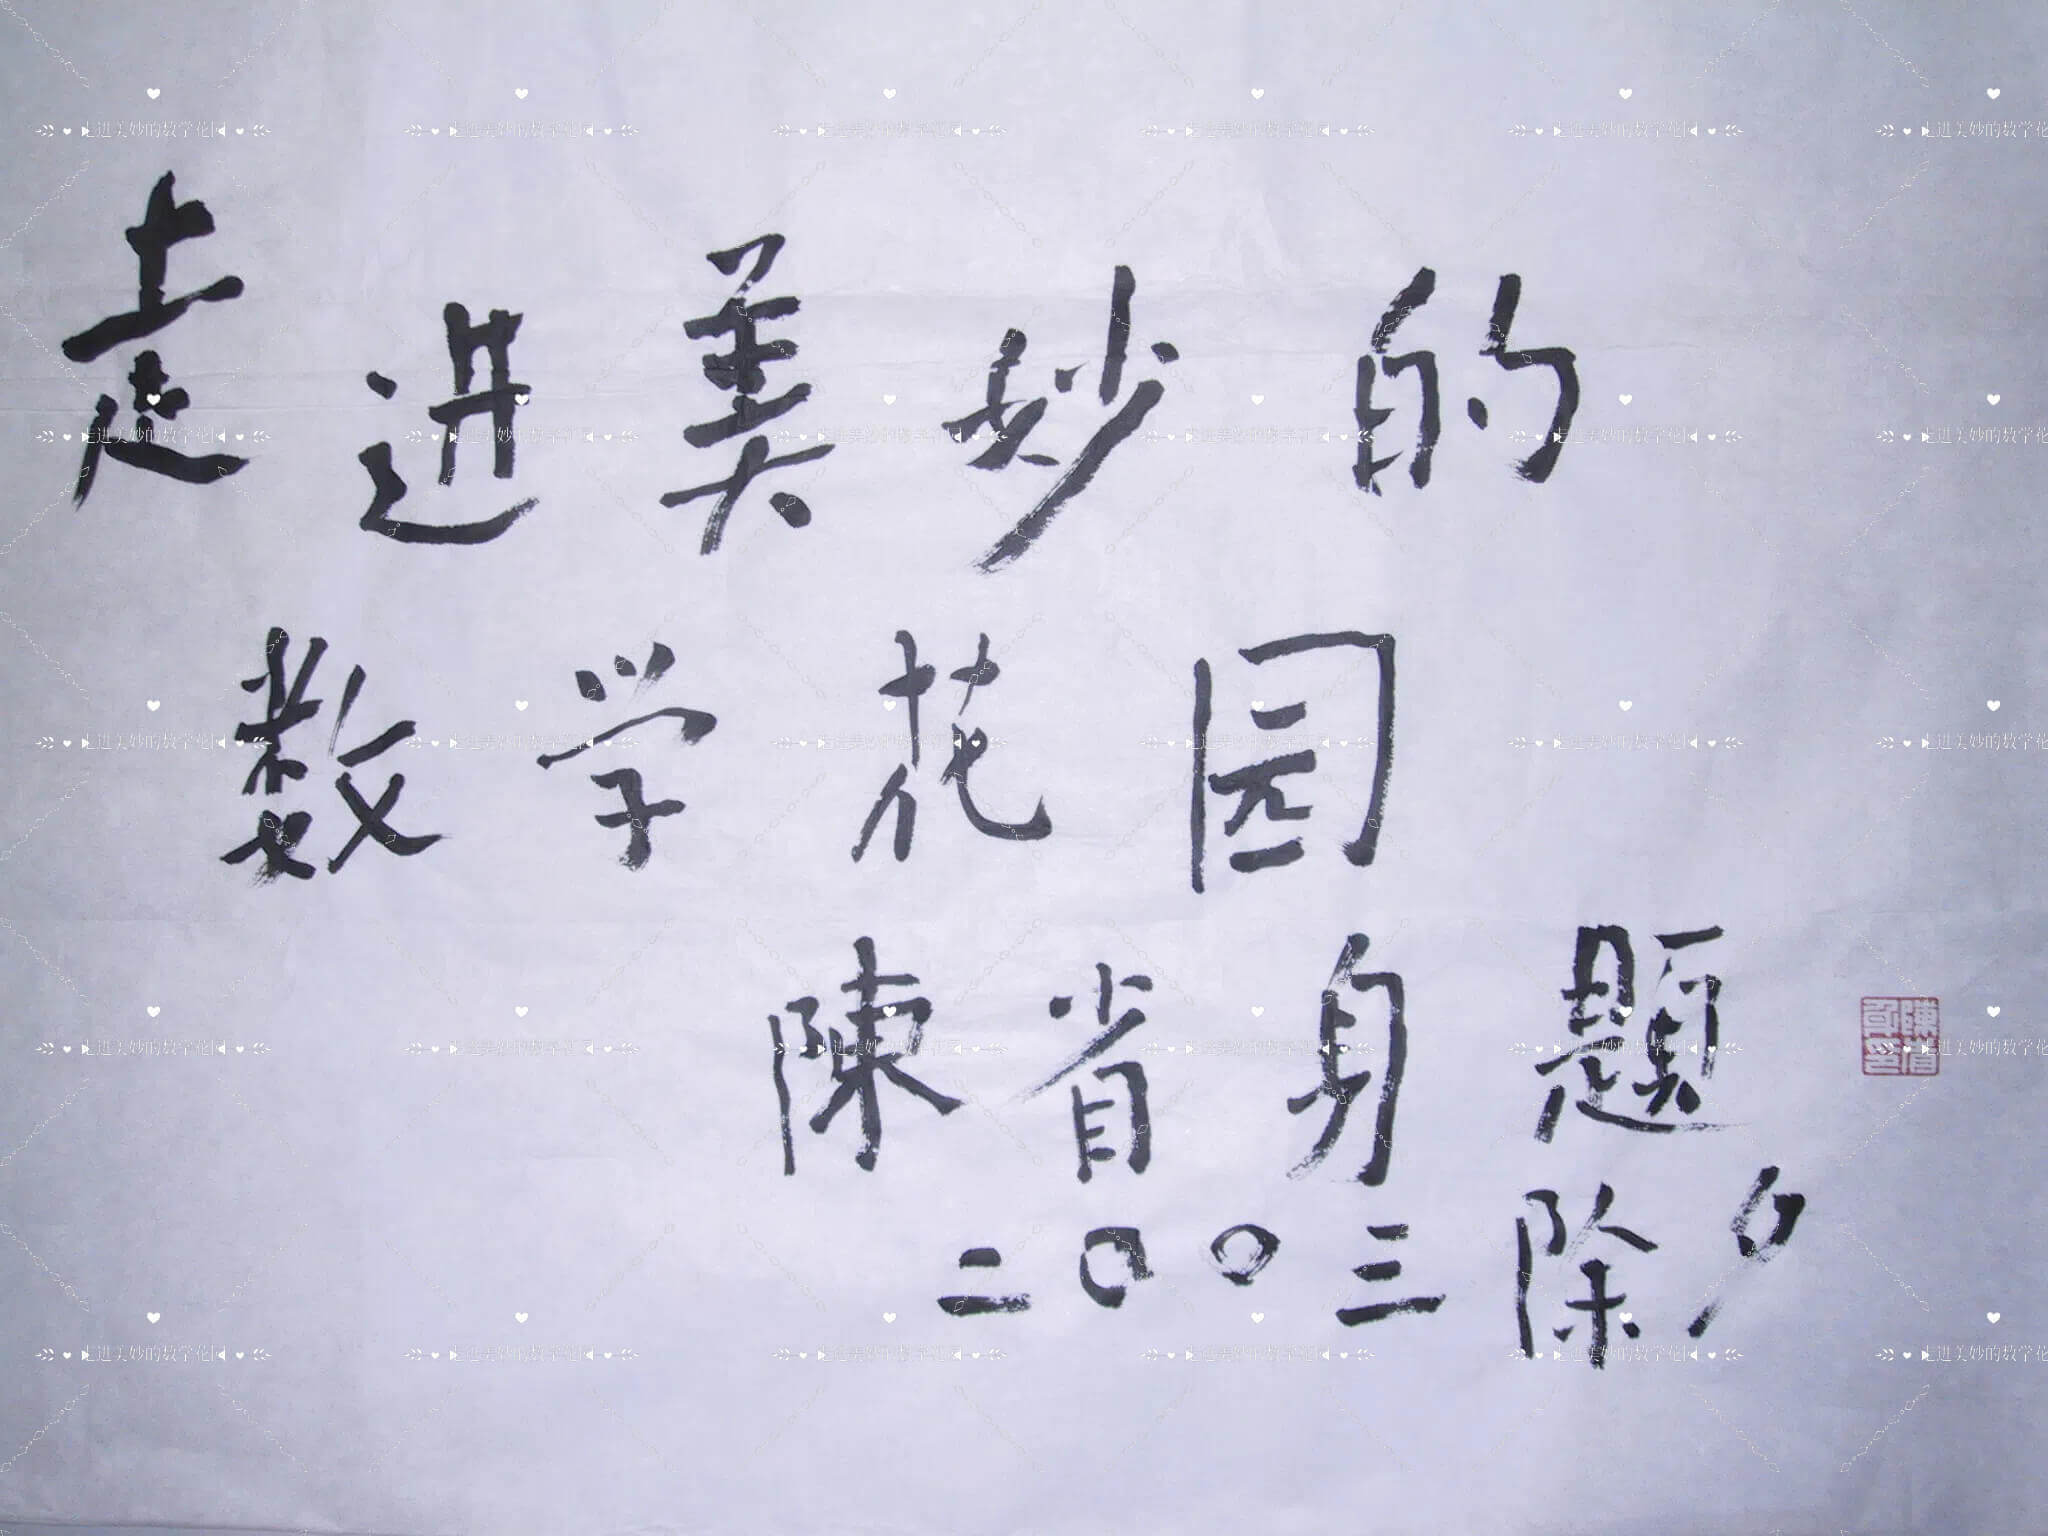 走进美妙的
数学花园
陳省身題
二〇〇三除夕
走进美妙的数学花园